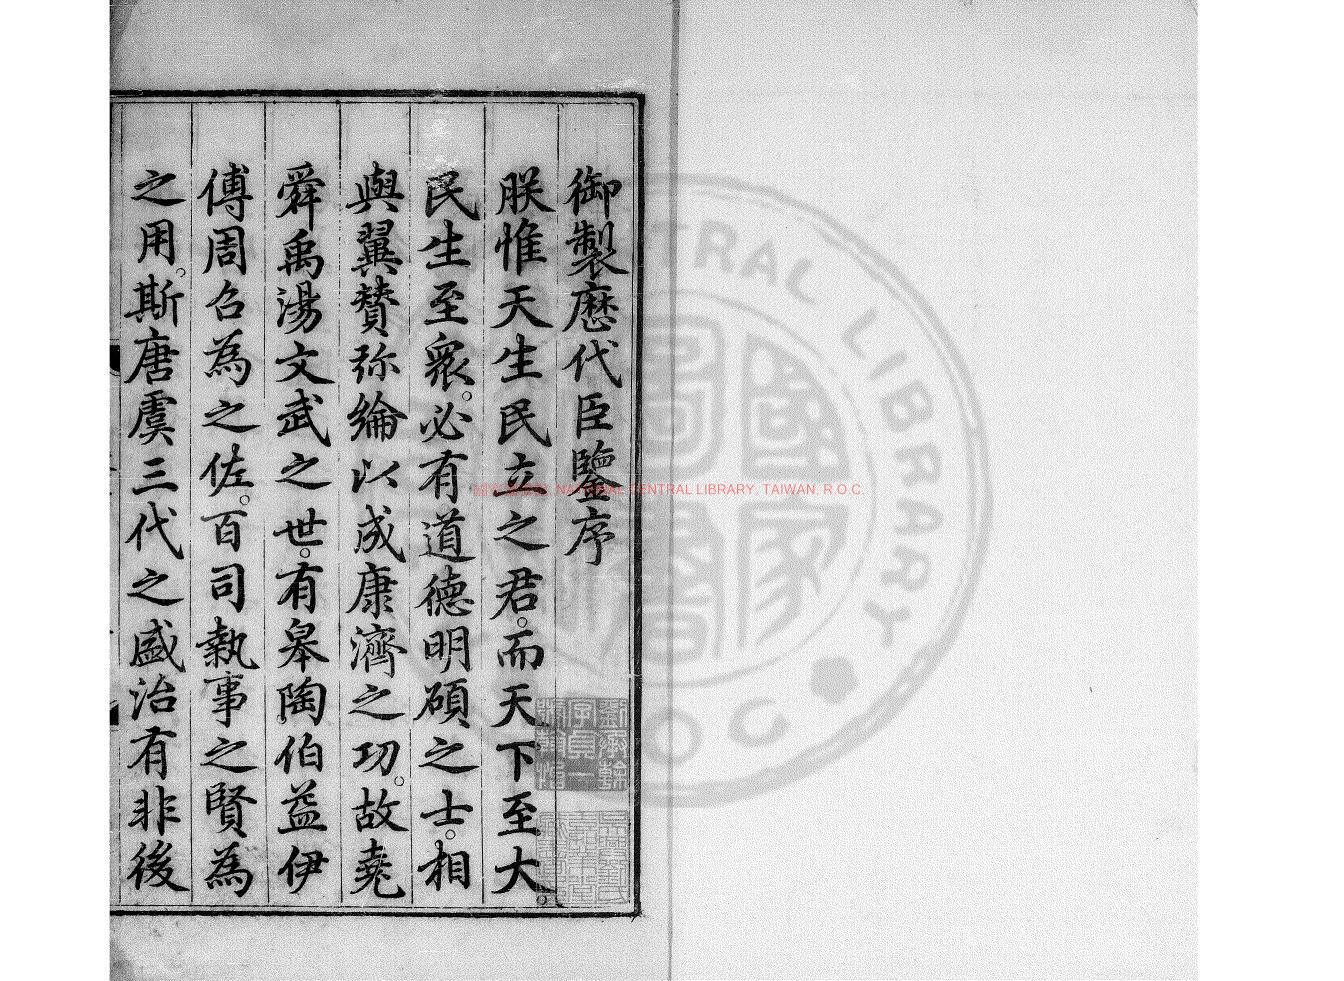 御製歷代臣鑒序
朕惟天生民立之君。而天下至大。
民生至衆。必有道德明碩之士。相
與翼賛弥綸以成康濟之功。故堯
舜禹湯文武之世。有皋陶伯益伊
傅周召為之佐。百司執事之賢為
之用。斯唐虞三代之盛治有非後
NATIONAL CENTRAL LIBRARY, TAIWAN, R.O.C.
CENTRAL LIBRARY
R O C
國家圖書
劉承幹
字貞一
號翰怡
吳興劉氏
嘉業堂
藏書印